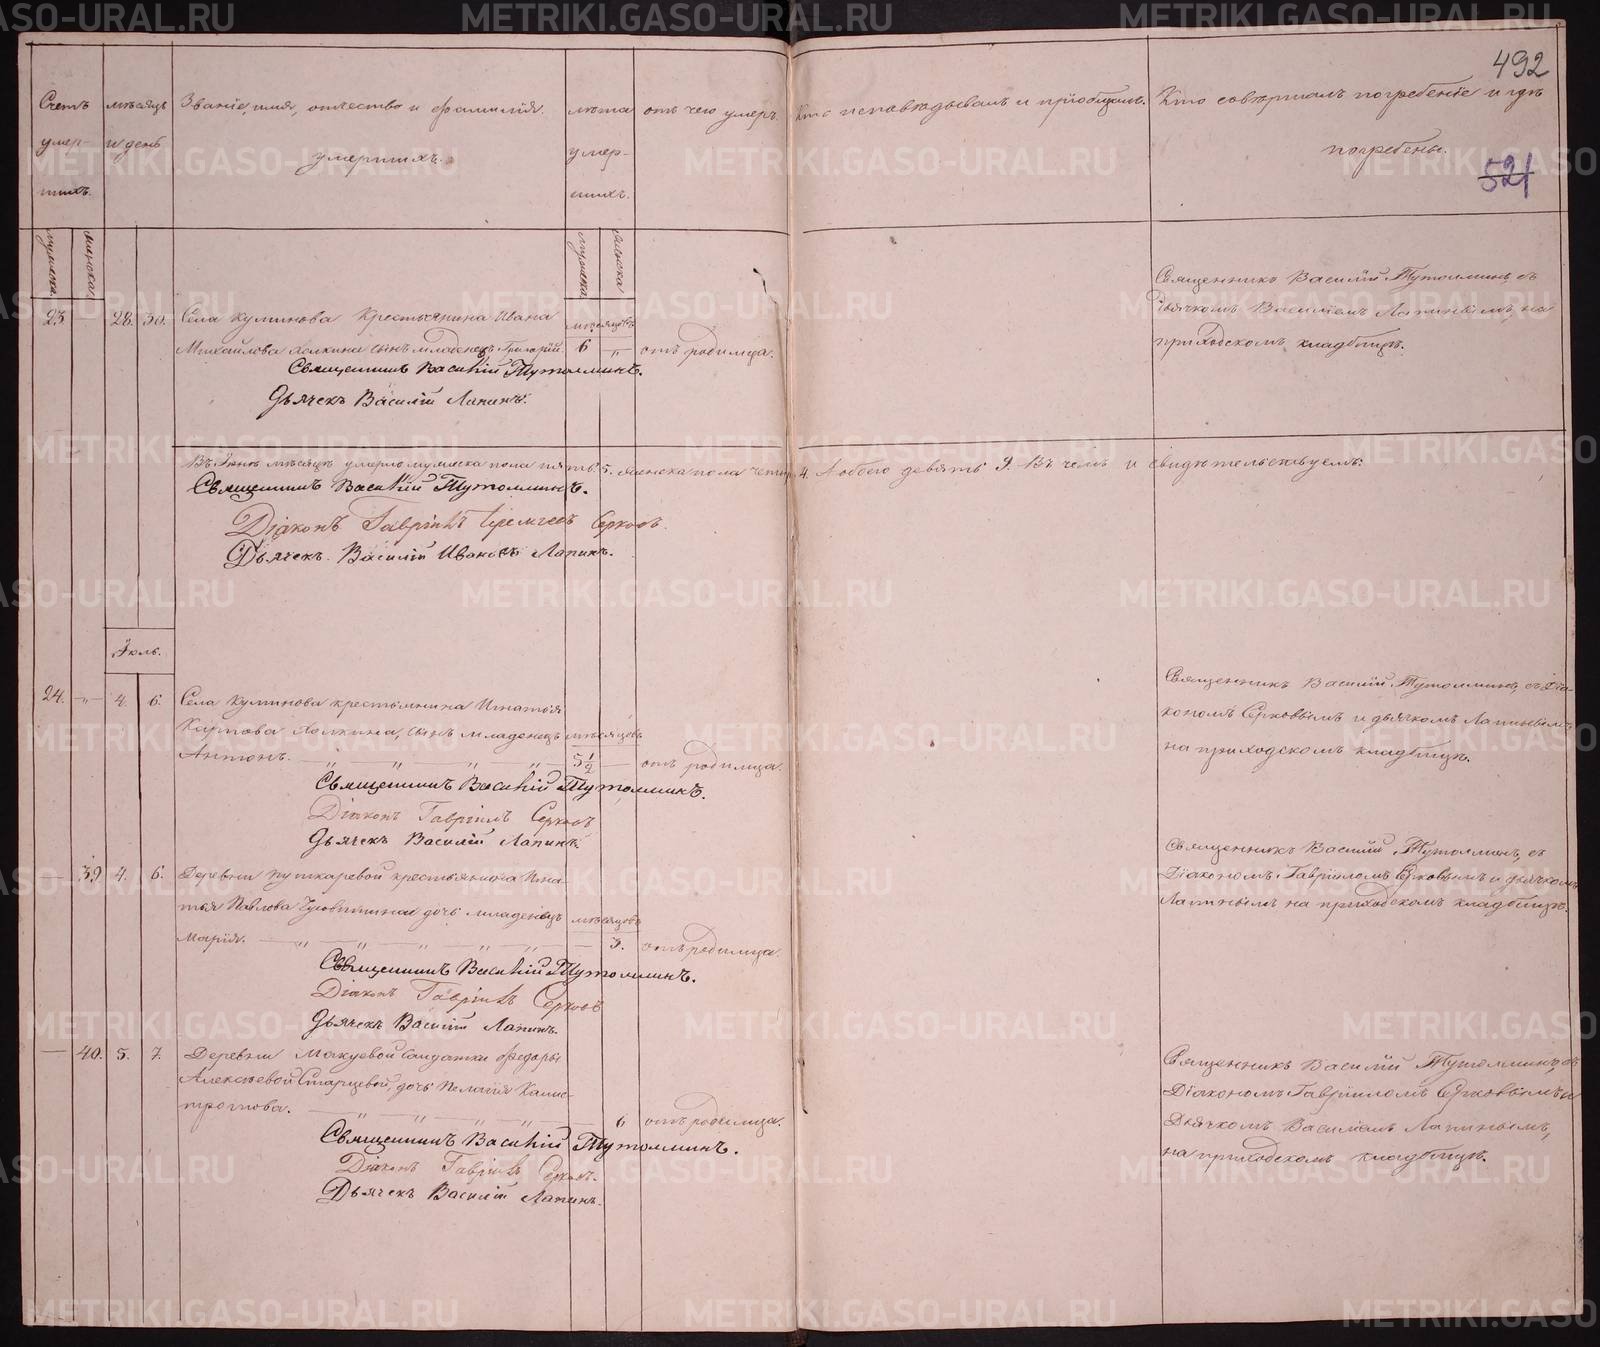 492
521
Счетъ умер- шихъ.
мѣсяцъ и день
Званіе, имя, отчество и фамилія
умершихъ.
лѣта умер- шихъ.
отъ чего умеръ.
Кто исповѣдывалъ и пріобщалъ.
Кто совершалъ погребеніе и гдѣ
погребены.
мужеска женска
мужеска женска
23. 28. 30. Села Куминова крестьянина Ивана
Михайлова сынъ младенецъ Григорій. мѣсяцовъ 6 — „ отъ родимца.
Священникъ Василій Тутолминъ.
Дьячекъ Василій Лапинъ.
Священникъ Василій Тутолминъ, съ
дьячкомъ Василіемъ Лапинымъ, на
приходскомъ кладбищѣ.
Въ Іюнѣ мѣсяцѣ умерло мужеска пола пять 5. женска пола четыр. 4. А обоего девять 9. Въ чемъ и свидѣтельствуемъ:
Священникъ Василій Тутолминъ.
Діаконъ Гавріилъ Серковъ.
Дьячекъ Василій Ивановъ Лапинъ.
Іюль.
24. — „ — 4. 6. Села Куминова крестьянина Игнатья
Карпова сынъ младенецъ мѣсяцовъ
Антонъ. — „ — „ — „ — „ — 5 1/2 — отъ родимца.
Священникъ Василій Тутолминъ.
Діаконъ Гавріилъ Серковъ
Дьячекъ Василій Лапинъ.
Священникъ Василій Тутолминъ, съ Діа-
кономъ Серковымъ и дьячкомъ Лапинымъ
на приходскомъ кладбищѣ.
— 39 4. 6. Деревни Пушкаревой крестьянина Игна-
тья Павлова дочь младенецъ мѣсяцовъ
Марія. — „ — „ — „ — „ — „ — 3. отъ родимца.
Священникъ Василій Тутолминъ.
Діаконъ Гавріилъ Серковъ
Дьячекъ Василій Лапинъ.
Священникъ Василій Тутолминъ, съ
Діакономъ Гавріиломъ Серковымъ и дьячкомъ
Лапинымъ на приходскомъ кладбищѣ.
— 40. 5. 7. Деревни Макуевой Солдатки Федоры
Алексѣевой Старцевой, дочь Пелагія Калис-
тратова. — „ — „ — „ — „ — 6 отъ родимца.
Священникъ Василій Тутолминъ.
Діаконъ Гавріилъ Серковъ.
Дьячекъ Василій Лапинъ.
Священникъ Василій Тутолминъ, съ
Діакономъ Гавріиломъ Серковымъ и
Дьячкомъ Василіемъ Лапинымъ,
на приходскомъ кладбищѣ.
METRIKI.GASO-URAL.RU